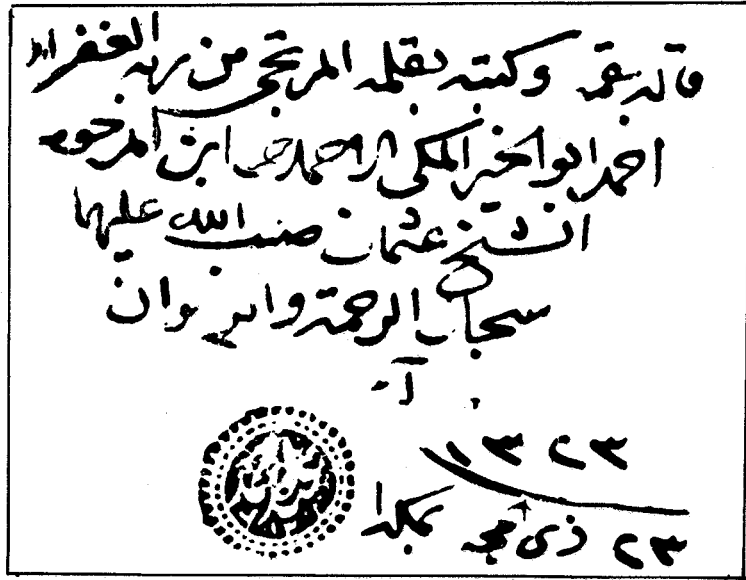 قاله بفمه وكتبه بقلمه المرتجى من ربه الغفران
احمد ابو الخير المكى الاحمدى ابن المرحوم
الشيخ عثمان صب الله عليهما
سجال الرحمة والرضوان
آمين
١٣٢٣
٢٣ ذى حجه